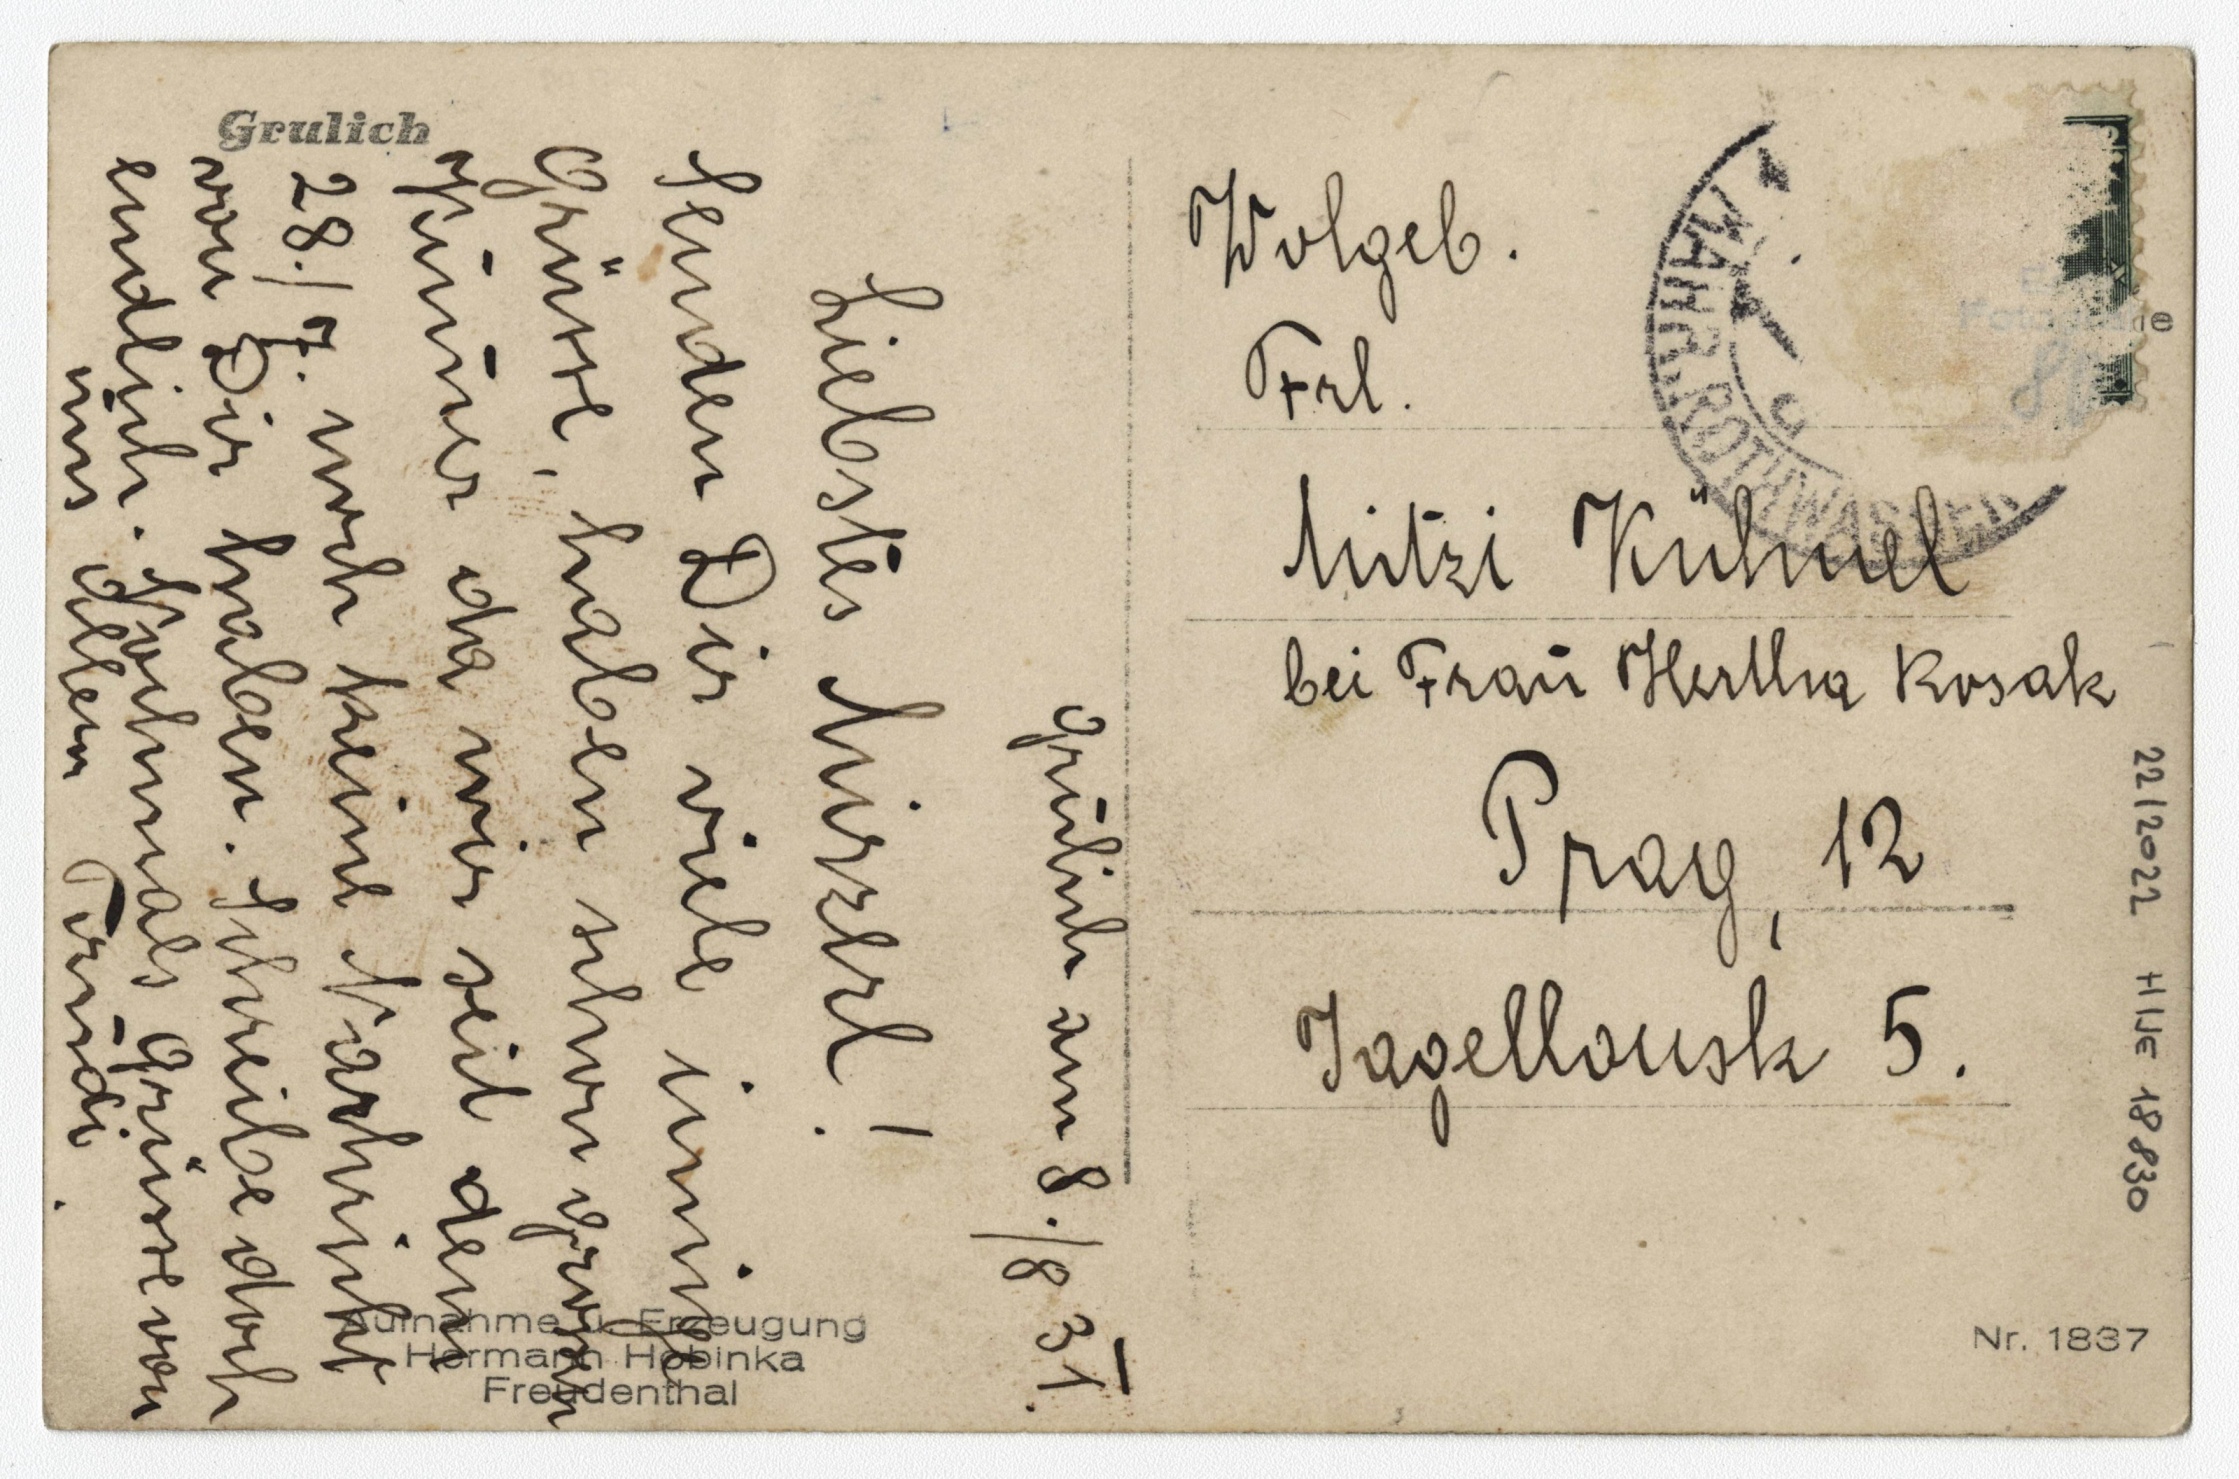 Grulich
Grulich am 8./8 31.
Liebstes Mirzerl!
Senden Dir viele innige
Grüsse, haben schon grossen
da wir seit dem
28./7. noch keine Nachricht
von Dir haben. Schreibe doch
endlich. Nochmals Grüsse von
uns allen Trudi.
Aufnahme u. Erzeugung
Hermann Hobinka
Freudenthal
Wolgeb.
Frl.
Mitzi Kühnel
bei Frau Hertha Kosak
Prag, 12
Jagellonsk 5.
MÄHR. ROTHWASSER
22/2022 HIJE 18830
Nr. 1837